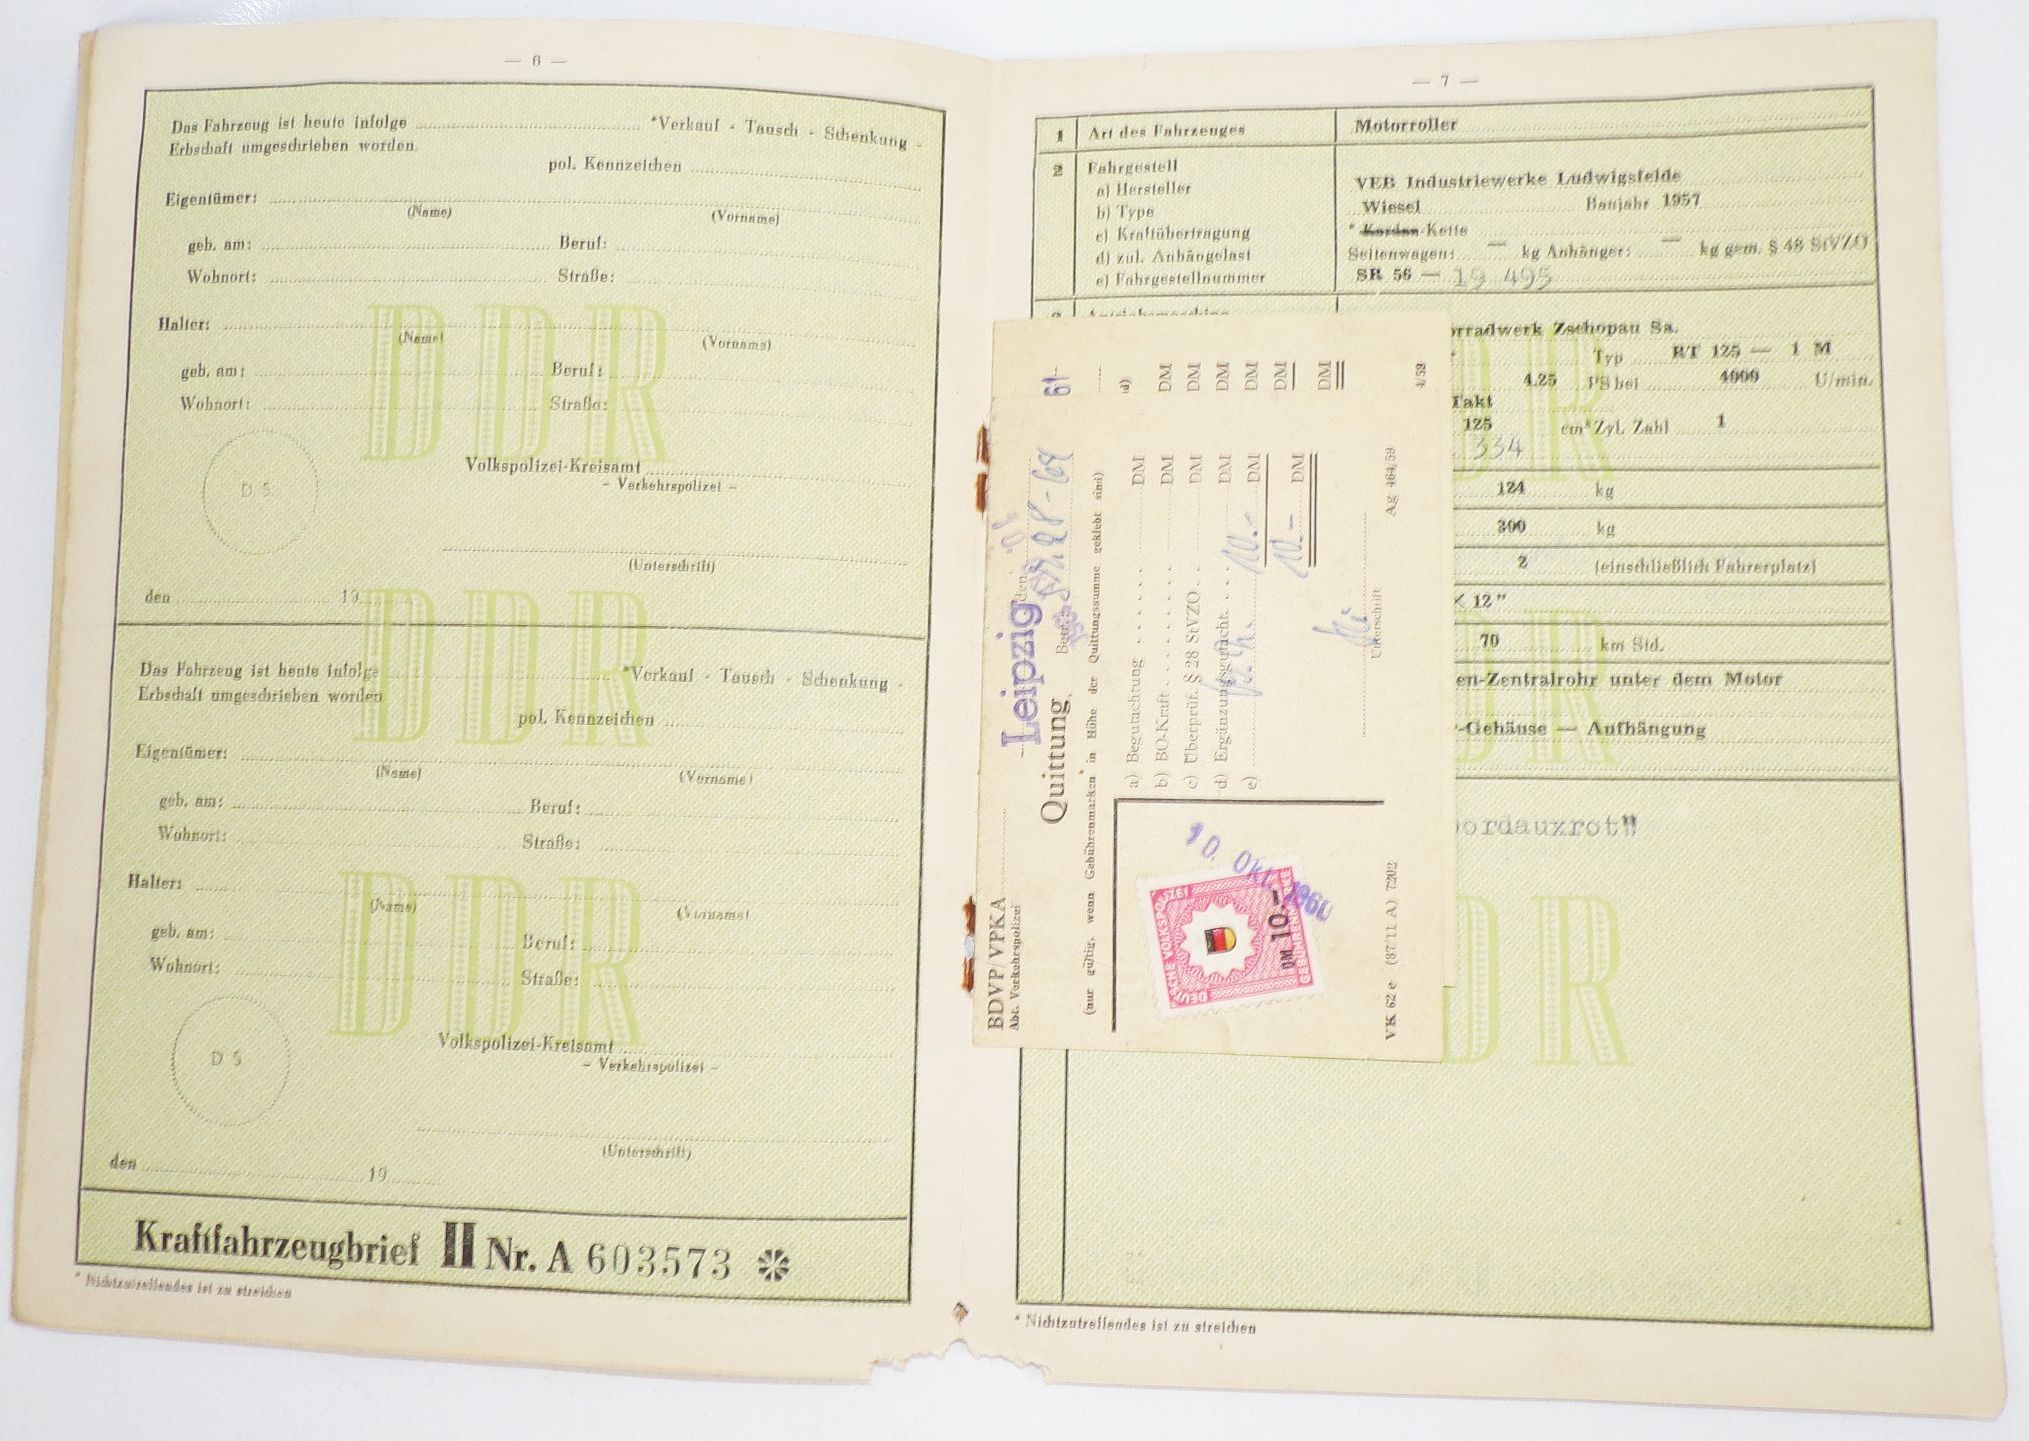 — 6 —
Das Fahrzeug ist heute infolge *Verkauf - Tausch - Schenkung -
Erbschaft umgeschrieben worden.
pol. Kennzeichen
Eigentümer:
(Name) (Vorname)
geb. am: Beruf:
Wohnort: Straße:
Halter:
(Name) (Vorname)
geb. am: Beruf:
Wohnort: Straße:
DDR
D S.
Volkspolizei-Kreisamt
- Verkehrspolizei -
(Unterschrift)
den 19
DDR
Das Fahrzeug ist heute infolge *Verkauf - Tausch - Schenkung -
Erbschaft umgeschrieben worden
pol. Kennzeichen
Eigentümer:
(Name) (Vorname)
geb. am: Beruf:
Wohnort: Straße:
Halter:
(Name) (Vorname)
geb. am: Beruf:
Wohnort: Straße:
DDR
D S
Volkspolizei-Kreisamt
- Verkehrspolizei -
(Unterschrift)
den 19
Kraftfahrzeugbrief II Nr. A 603573
* Nichtzutreffendes ist zu streichen
— 7 —
1 Art des Fahrzeuges Motorroller
2 Fahrgestell
a) Hersteller VEB Industriewerke Ludwigsfelde
b) Type Wiesel Baujahr 1957
c) Kraftübertragung * Kardan-Kette
d) zul. Anhängelast Seitenwagen: — kg Anhänger: — kg gem. § 48 StVZO
e) Fahrgestellnummer SR 56 — 19 495
3 Antriebsmaschine
orradwerk Zschopau Sa.
Typ RT 125 — 1 M
4.25 PS bei 4000 U/min.
Takt
125 cm³ Zyl. Zahl 1
334
124 kg
300 kg
2 (einschließlich Fahrerplatz)
× 12"
70 km Std.
en-Zentralrohr unter dem Motor
-Gehäuse — Aufhängung
bordauxrot"
DR
DR
DR
* Nichtzutreffendes ist zu streichen
BDVP/VPKA Leipzig den
Abt. Verkehrspolizei
Quittung Betr.: 28-64
(nur gültig, wenn Gebührenmarken in Höhe der Quittungssumme geklebt sind)
a) Begutachtung DM
b) BO-Kraft DM
c) Überprüf. § 28 StVZO DM
d) Ergänzungsgutacht. DM
e) 10.- DM
10.- DM
Unterschrift
VK 62 e (87/11 A) 7202 Ag 464/59
DEUTSCHE VOLKSPOLIZEI
GEBÜHRENMARKE
DM 10.-
10. Okt. 1960
61-
d)
DM
DM
DM
DM
DM
DM
4/59